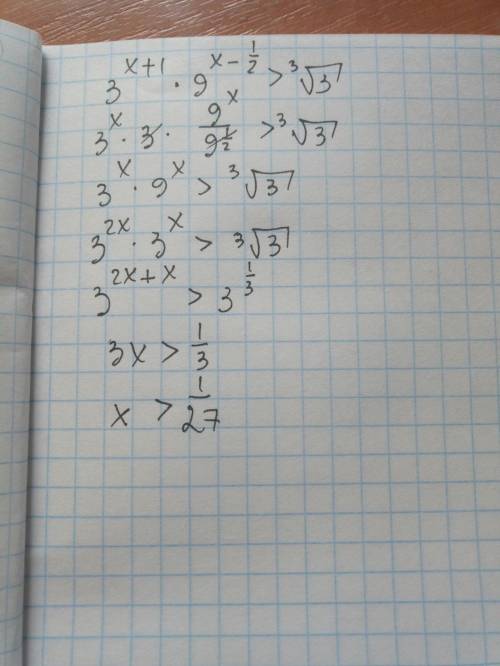 3^{x+1} · 9^{x-\frac{1}{2}} > ∛3
3^x · 3 · \frac{9^x}{9^{\frac{1}{2}}} > ∛3
3^x · 9^x > ∛3
3^{2x} · 3^x > ∛3
3^{2x+x} > 3^{\frac{1}{3}}
3x > \frac{1}{3}
x > \frac{1}{27}